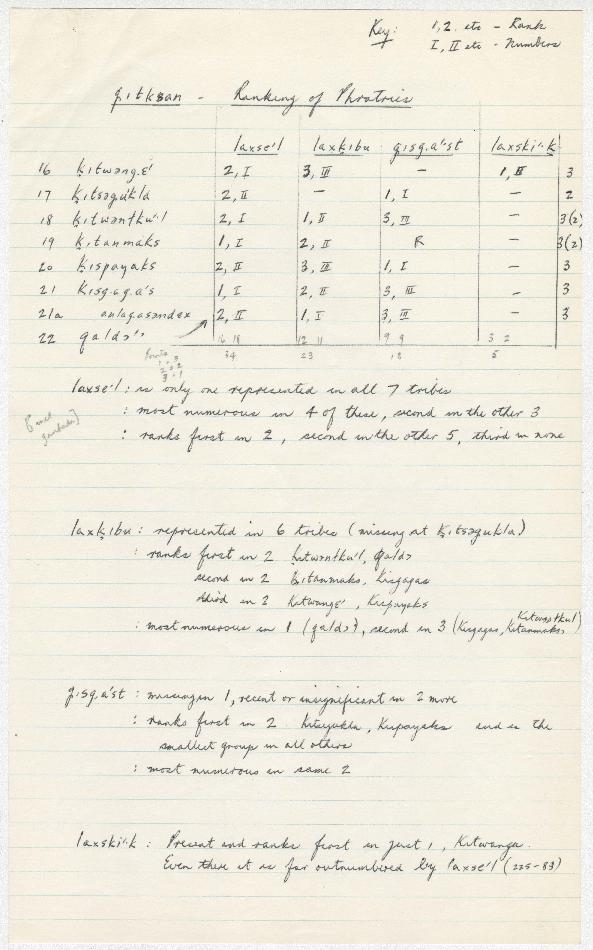 Key: 1, 2. etc - Rank
I, II etc - Numbers
gitksan - Ranking of Phratries
laxse'l laxḵibu gisg.a'st laxski'·k
16 ḵitwang.ɛ' 2, I 3, III - 1, II 3
17 ḵitsəgu'kla 2, II - 1, I - 2
18 ḵitwənłku'l 2, I 1, II 3, III - 3(2)
19 ḵitanmáks 1, I 2, II R - 3(2)
20 ḵispayaks 2, II 3, III 1, I - 3
21 ḵisg.ag.a's 1, I 2, II 3, III - 3
21a anlag.asəmdɛx 2, II 1, I 3, III - 3
22 qaldɔ'' 16 18 12 11 9 9 3 2
Points 34 23 18 5
1 = 3
2 = 2
3 = 1
laxse'l : is only one represented in all 7 tribes
: most numerous in 4 of these, second in the other 3
: ranks first in 2, second in the other 5, third in none
laxḵibu : represented in 6 tribes (missing at ḵitsəgukla)
: ranks first in 2 ḵitwənłku'l, qaldɔ
second in 2 ḵitanmaks, Kisgagas
third in 2 Kitwangɛ', Kispayaks
: most numerous in 1 (qaldɔ?), second in 3 (Kisgagas, Kitanmaks, Kitwənłkul)
gisg.a'st : missing in 1, recent or insignificant in 2 more
: ranks first in 2 Kitsegukla, Kispayaks and is the
smallest group in all others
: most numerous in same 2
laxski'·k : Present and ranks first in just 1, Kitwanga.
Even there it is far outnumbered by laxse'l (225-83)